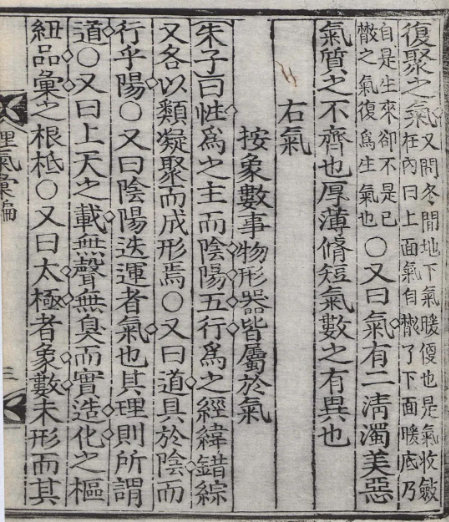 復聚之氣又問冬間地下氣暖便也是氣收斂
在內曰上面氣自散了下面暖底乃
自是生來卻不是已
散之氣復爲生氣也○又曰氣有二清濁美惡
氣質之不齊也厚薄脩短氣數之有異也
右氣
按象數事物形器皆屬於氣
朱子曰性爲之主而陰陽五行爲之經緯錯綜
又各以類凝聚而成形焉○又曰道具於陰而
行乎陽○又曰陰陽迭運者氣也其理則所謂
道○又曰上天之載無聲無臭而實造化之樞
紐品彙之根柢○又曰太極者象數未形而其
理氣彙編
三